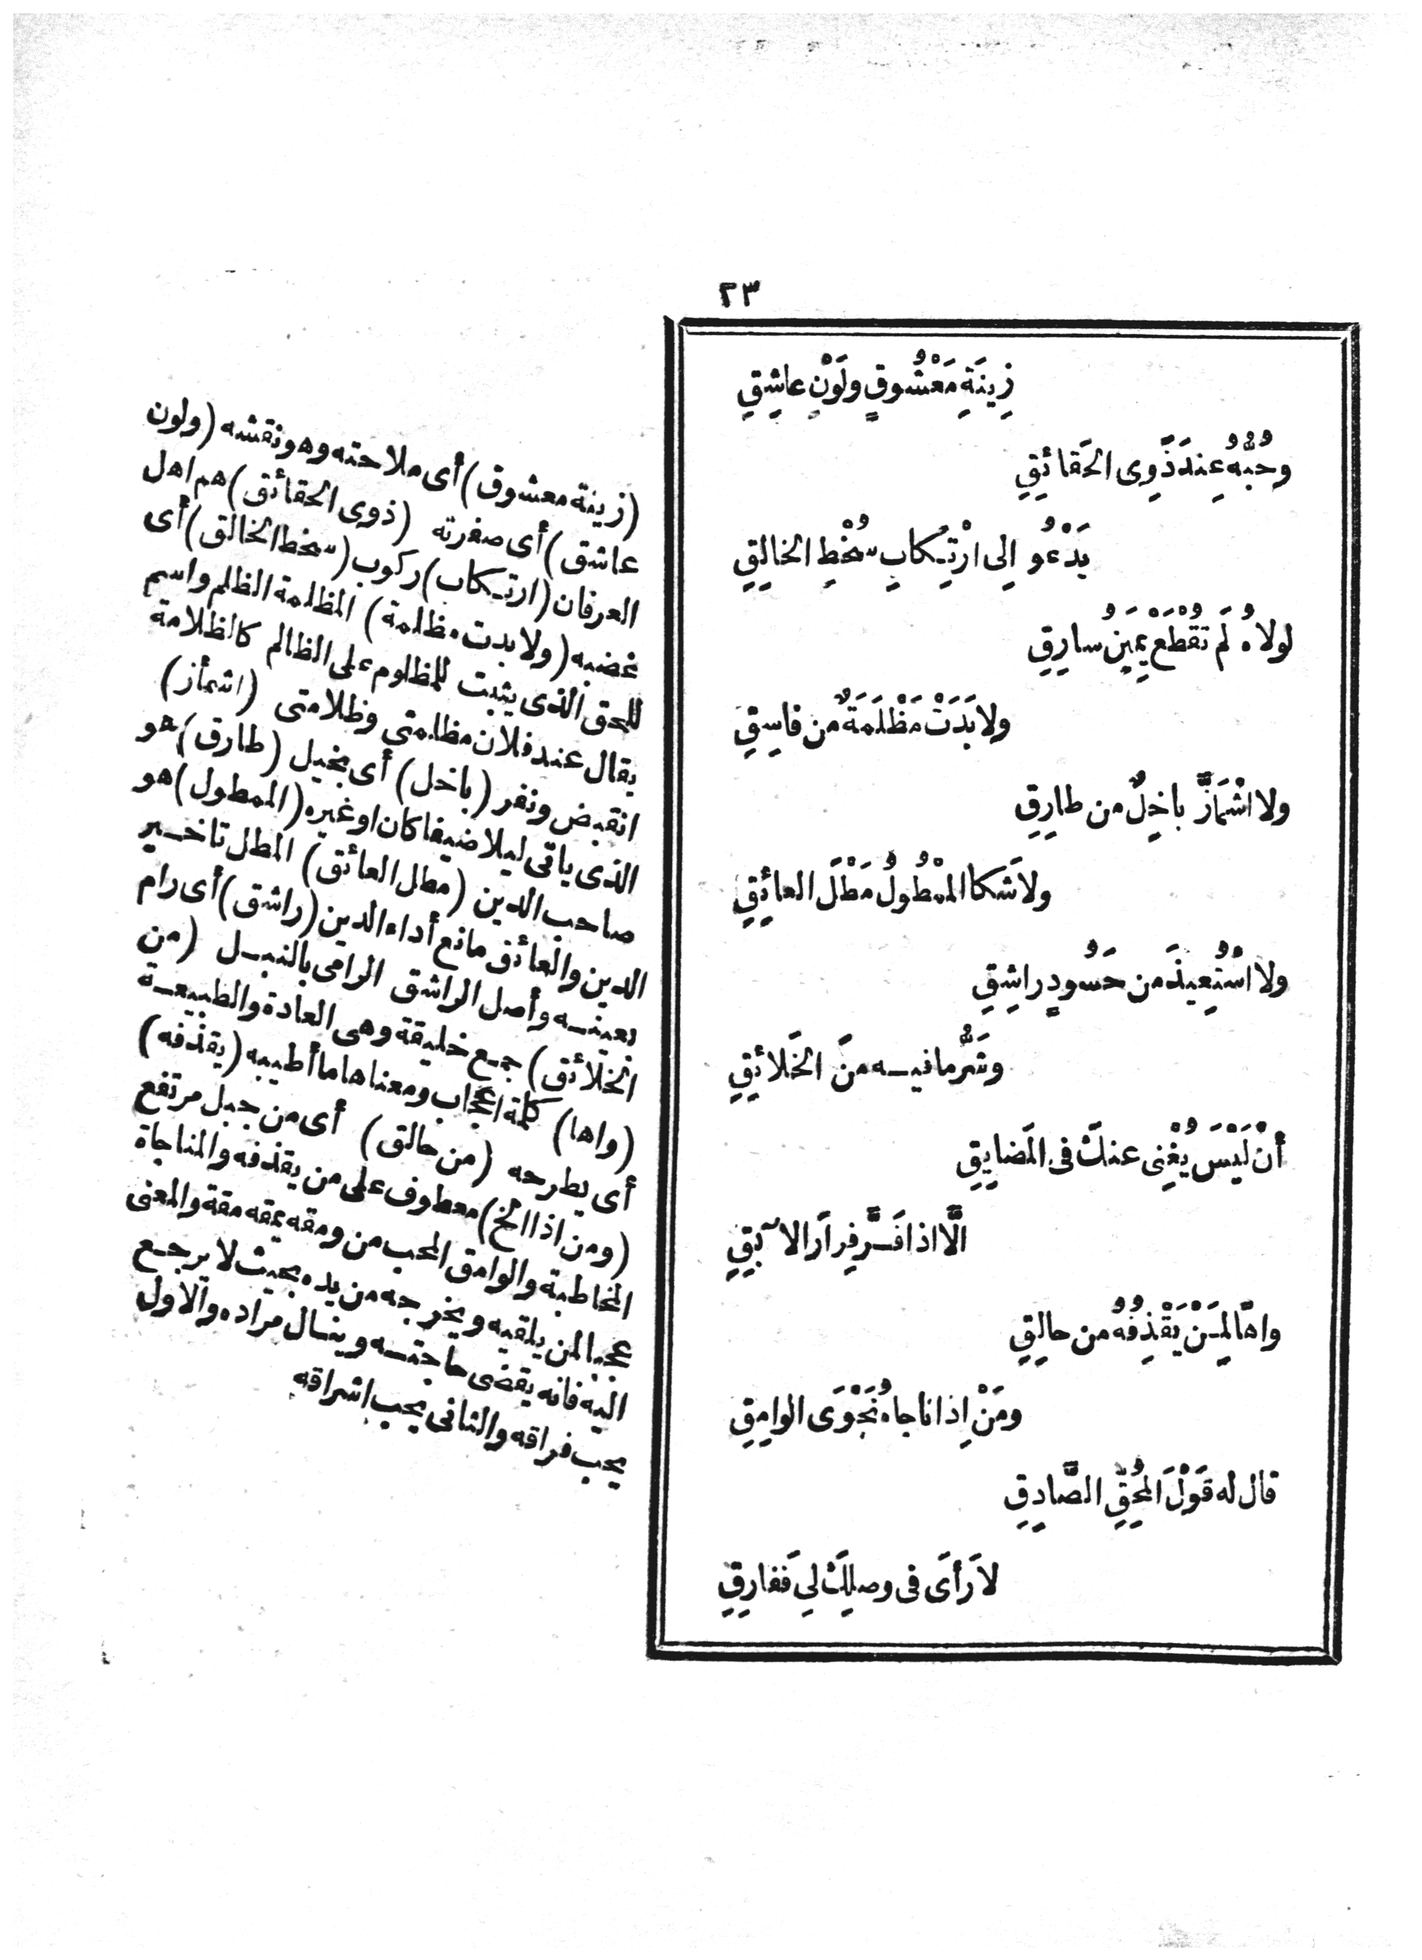 ٢٣
زِينَةِ مَعْشُوقٍ ولَوْنِ عاشِقِ
وحُبُّهُ عِندَ ذَوِى الحَقائِقِ
يَدْعُو إِلى ارْتِكابِ سُخْطِ الخالِقِ
لولاهُ لَم تُقْطَعْ يَمِينُ سارِقِ
ولا بَدَتْ مَظْلَمَةٌ من فاسِقِ
ولا اشْمَأَزَّ باخِلٌ من طارِقِ
ولا شَكا المَمْطُولُ مَطْلَ العائِقِ
ولا اسْتُعِيذَ من حَسُودٍ راشِقِ
وشَرُّ ما فيـه منَ الخَلائِقِ
أنْ لَيْسَ يُغْنِى عنكَ فى المَضايِقِ
الَّا اذا فَـرَّ فِرارَ الآبِقِ
واهًا لِمَـنْ يَقْذِفُهُ من حالِقِ
ومَنْ اِذا ناجاهُ نَجْوَى الوامِقِ
قال له قَوْلَ المُحِقِّ الصَّادِقِ
لا رَأىَ فى وصلِكَ لِى فَفارِقِ
(زينة معشوق) أى ملاحته وهو نقشه (ولون
عاشق) أى صفرته (ذوى الحقائق) هم اهل
العرفان (ارتـكاب) ركوب (سخط الخالق) أى
غضبه (ولا بدت مظلمة) المظلمة الظلم واسم
للحق الذى يثبت للمظلوم على الظالم كالظلامة
يقال عند فلان مظلمتى وظلامتى (اشمأز)
انقبض ونفر (باخل) أى بخيل (طارق) هو
الذى ياتى ليلا ضيفا كان او غيره (الممطول) هو
صاحب الدين (مطل العائق) المطل تاخـير
الدين والعائق مانع أداء الدين (راشق) أى رام
بعينـه وأصل الراشق الرامى بالنبـل (من
الخلائق) جمع خليقة وهى العادة والطبيعـة
(واها) كلمة اعجاب ومعناها ما أطيبه (يقذفه)
أى يطرحه (من حالق) أى من جبل مرتفع
(ومن اذا الخ) معطوف على من يقذفه والمناجاة
المخاطبة والوامق المحب من ومقه يمقه مقة والمعنى
عجبا لمن يلقيه ويخرجه من يده بحيث لا يرجـع
اليه فانه يقضى حاجتـه وينال مراده والاول
يحب فراقه والثانى يحب اشراقه